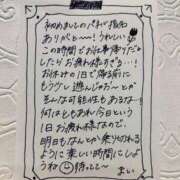 初めましてのパネル指名
ありがと〜！うれしい
この時間でお仕事帰りだと
したらお疲れ様すぎる…！
お休みの1日で帰る前に
もう少し遊んじゃお〜とか
そんな可能性もあるな…！
何はともあれ今日という
1日お疲れ様なので、
明日もなんとか乗り切れる
ように楽しい時間にしよ
うね
まい